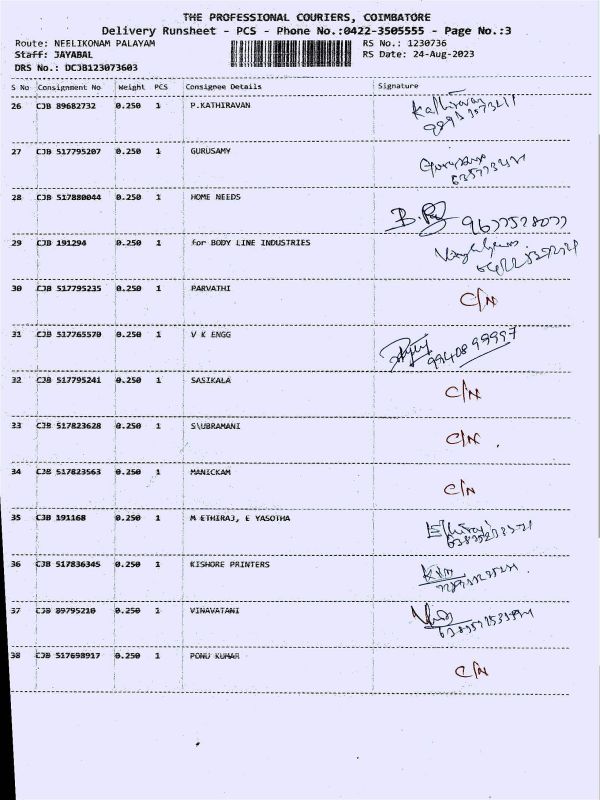 THE PROFESSIONAL COURIERS, COIMBATORE
Delivery Runsheet - PCS - Phone No.:0422-3505555 - Page No.:3
Route: NEELIKONAM PALAYAM RS No.: 1230736
Staff: JAYABAL RS Date: 24-Aug-2023
DRS No.: DCJB123073603
S No Consignment No Weight PCS Consignee Details Signature
26 CJB 89682732 0.250 1 P.KATHIRAVAN Kathiravan
27 CJB 517795207 0.250 1 GURUSAMY
28 CJB 517880044 0.250 1 HOME NEEDS
29 CJB 191294 0.250 1 for BODY LINE INDUSTRIES
30 CJB 517795235 0.250 1 PARVATHI C/N
31 CJB 517765570 0.250 1 V K ENGG 99408 99997
32 CJB 517795241 0.250 1 SASIKALA C/N
33 CJB 517823628 0.250 1 S\UBRAMANI C/N
34 CJB 517823563 0.250 1 MANICKAM C/N
35 CJB 191168 0.250 1 M ETHIRAJ, E YASOTHA
36 CJB 517836345 0.250 1 KISHORE PRINTERS
37 CJB 89795210 0.250 1 VINAVATANI
38 CJB 517698917 0.250 1 PONU KUMAR C/N